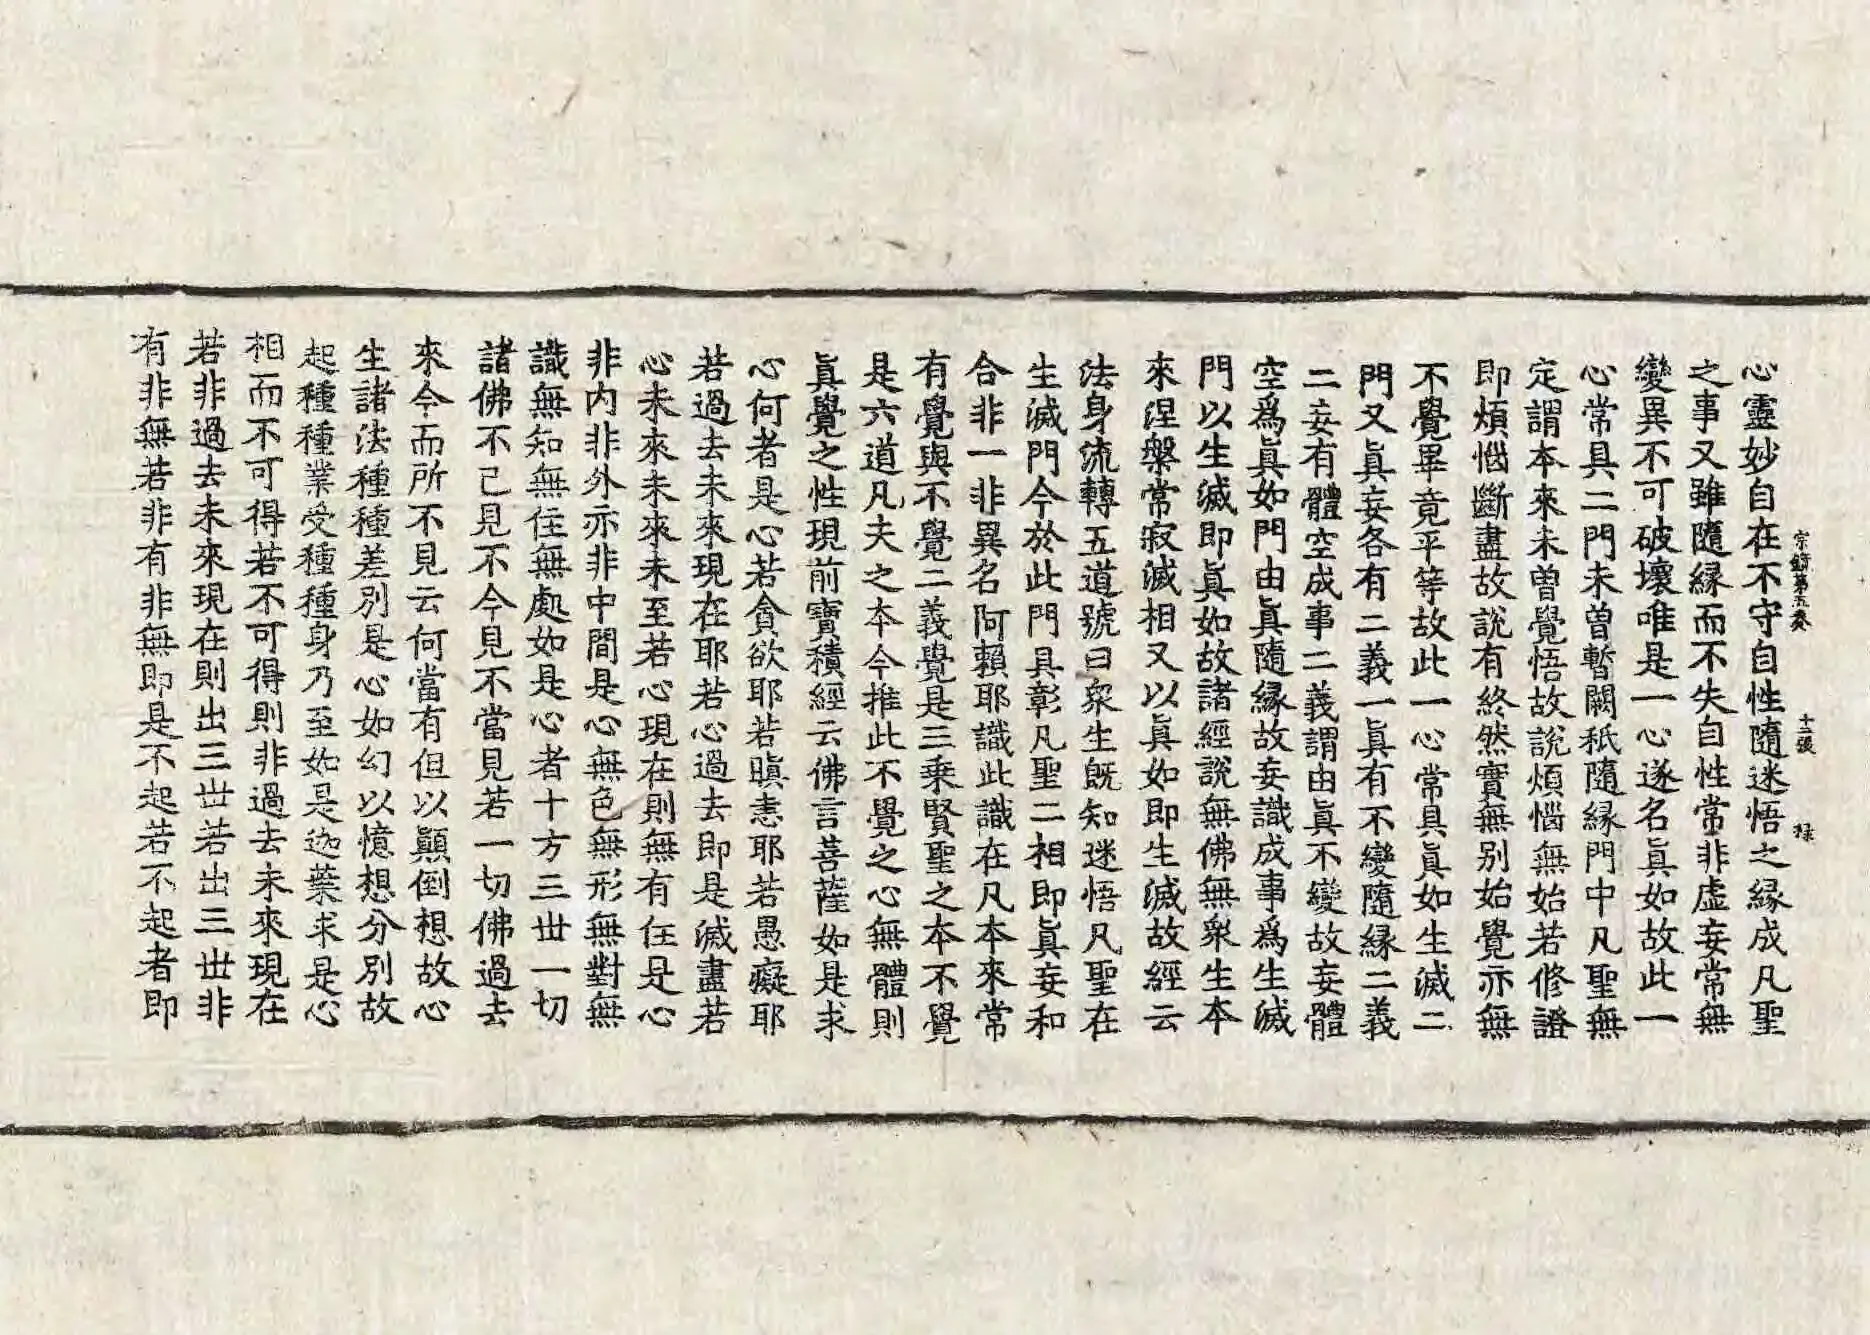 心靈妙自在不守自性隨迷悟之緣成凡聖
宗鏡第五卷 十二張 祿
之事又雖隨緣而不失自性常非虛妄常無
變異不可破壞唯是一心遂名眞如故此一
心常具二門未曾暫闕秖隨緣門中凡聖無
定謂本來未曾覺悟故說煩惱無始若修證
即煩惱斷盡故說有終然實無別始覺亦無
不覺畢竟平等故此一心常具眞如生滅二
門又眞妄各有二義一眞有不變隨緣二義
二妄有體空成事二義謂由眞不變故妄體
空爲眞如門由眞隨緣故妄識成事爲生滅
門以生滅即眞如故諸經說無佛無衆生本
來涅槃常寂滅相又以眞如即生滅故經云
法身流轉五道號曰衆生旣知迷悟凡聖在
生滅門今於此門具彰凡聖二相即眞妄和
合非一非異名阿賴耶識此識在凡本來常
有覺與不覺二義覺是三乘賢聖之本不覺
是六道凡夫之本今推此不覺之心無體則
眞覺之性現前寶積經云佛言菩薩如是求
心何者是心若貪欲耶若瞋恚耶若愚癡耶
若過去未來現在耶若心過去即是滅盡若
心未來未來未至若心現在則無有住是心
非內非外亦非中間是心無色無形無對無
識無知無住無處如是心者十方三世一切
諸佛不已見不今見不當見若一切佛過去
來今而所不見云何當有但以顚倒想故心
生諸法種種差別是心如幻以憶想分別故
起種種業受種種身乃至如是迦葉求是心
相而不可得若不可得則非過去未來現在
若非過去未來現在則出三世若出三世非
有非無若非有非無即是不起若不起者即